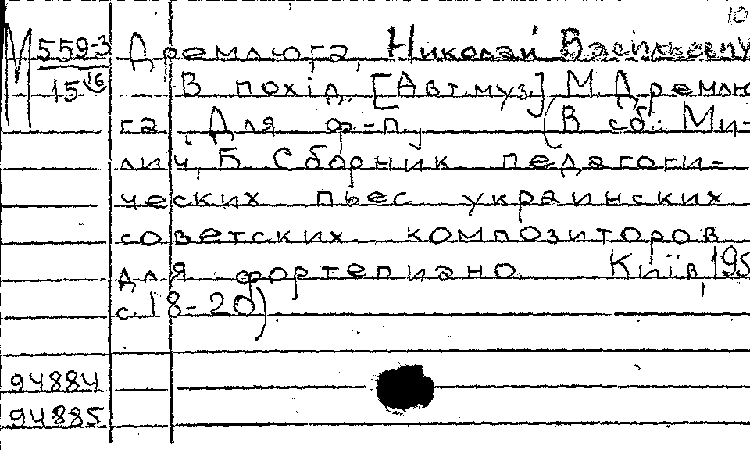 10
М 559-3 Дремлюга, Николай Васильевич
15 16 В похід. [Авт.муз.] М. Дремлю-
га. Для ф-п. (В сб.: Ми-
лич, Б. Сборник педагоги-
ческих пьес украинских
советских композиторов
для фортепиано. Київ, 195
с. 18-20)
94884
94885